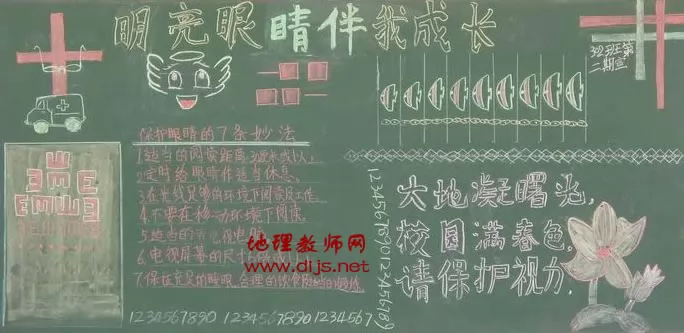 明亮眼睛伴我成长
32班第
二期宣
保护眼睛的7条妙法
1.适当的阅读距离,30厘米或以上。
2.定时给眼睛作适当休息。
3.在光线足够的环境下阅读及工作。
4.不要在移动环境下阅读。
5.适当的
6.电视屏幕的尺寸
7.保存充足的睡眠,合理的饮食
地理教师网
www.dljs.net
1234567890 1234567890 1234567
1234567890123456789
大地凝曙光,
校园满春色,
请保护视力,
E M W E